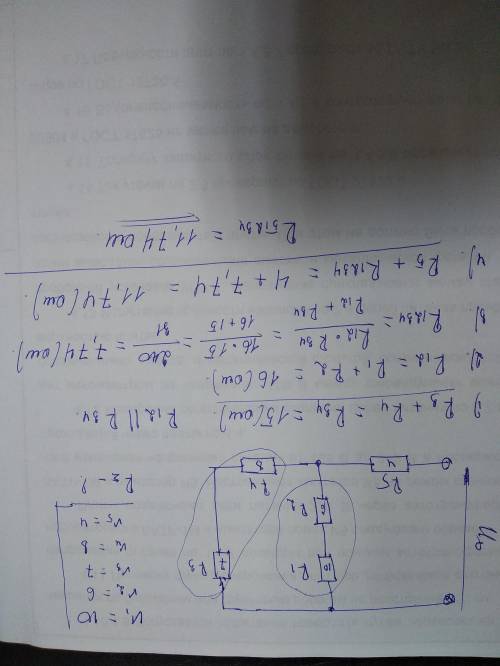 r₁ = 10
r₂ = 6
r₃ = 7
r₄ = 8
r₅ = 4
Rэ - ?
R₁
10
R₂
6
R₃
7
R₄
8
R₅
4
1) R₃ + R₄ = R₃₄ = 15 (ом) R₁₂ || R₃₄
2) R₁₂ = R₁ + R₂ = 16 (ом)
3) R₁₂₃₄ = R₁₂ · R₃₄ / R₁₂ + R₃₄ = 16 · 15 / 16 + 15 = 240 / 31 = 7,74 (ом).
4) R₅ + R₁₂₃₄ = 4 + 7,74 = 11,74 (ом).
R₅₁₂₃₄ = 11,74 ом.